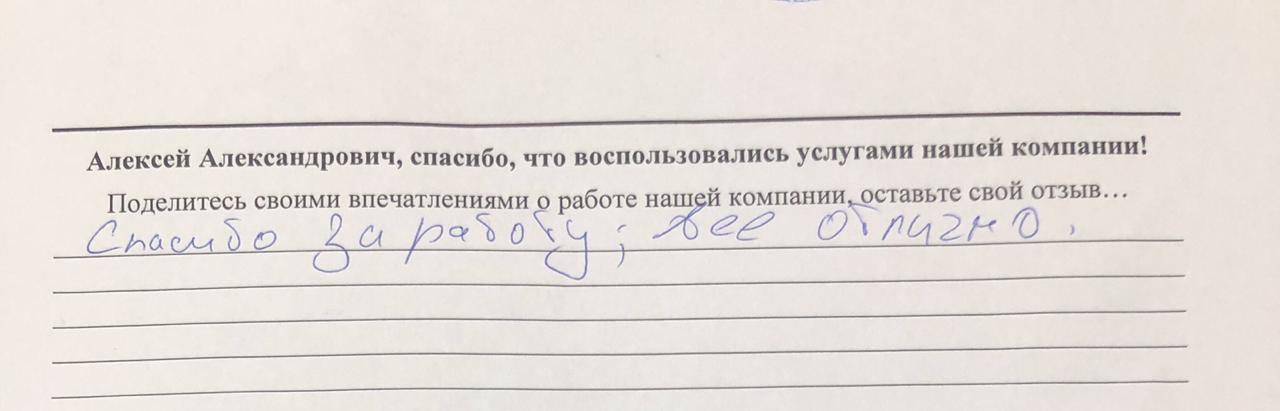 Алексей Александрович, спасибо, что воспользовались услугами нашей компании!
Поделитесь своими впечатлениями о работе нашей компании, оставьте свой отзыв…
Спасибо за работу; все отлично.